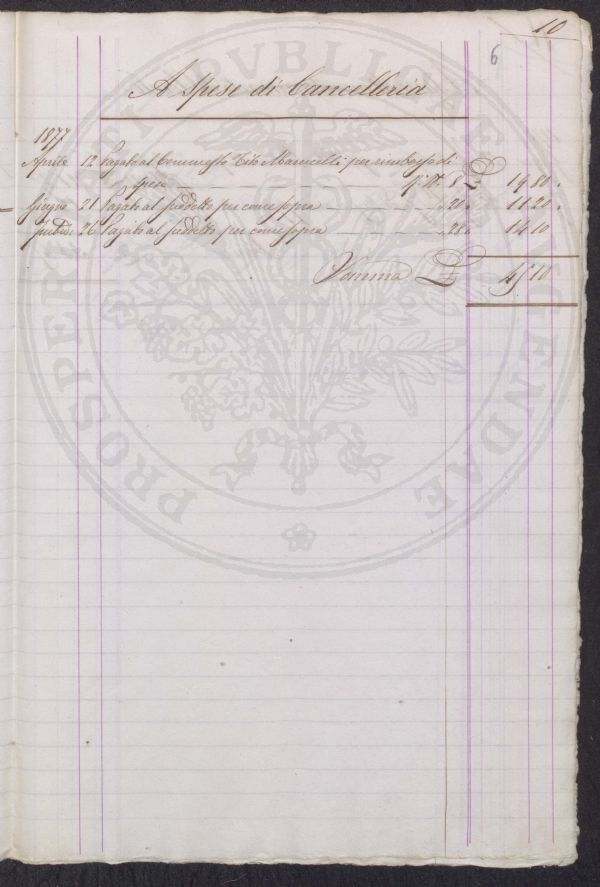 10
6
A spese di Cancelleria
1877
Aprile 12 Pagato al Commesso Tito Marucelli per rimborso di
spese N. 8 £ 19.80
Giugno 21 Pagato al suddetto per come sopra 20 11.20
26 Pagato al suddetto per come sopra 21 14.10
Somma £ 45.10
PROSPERITATI PUBLICAE AUGENDAE